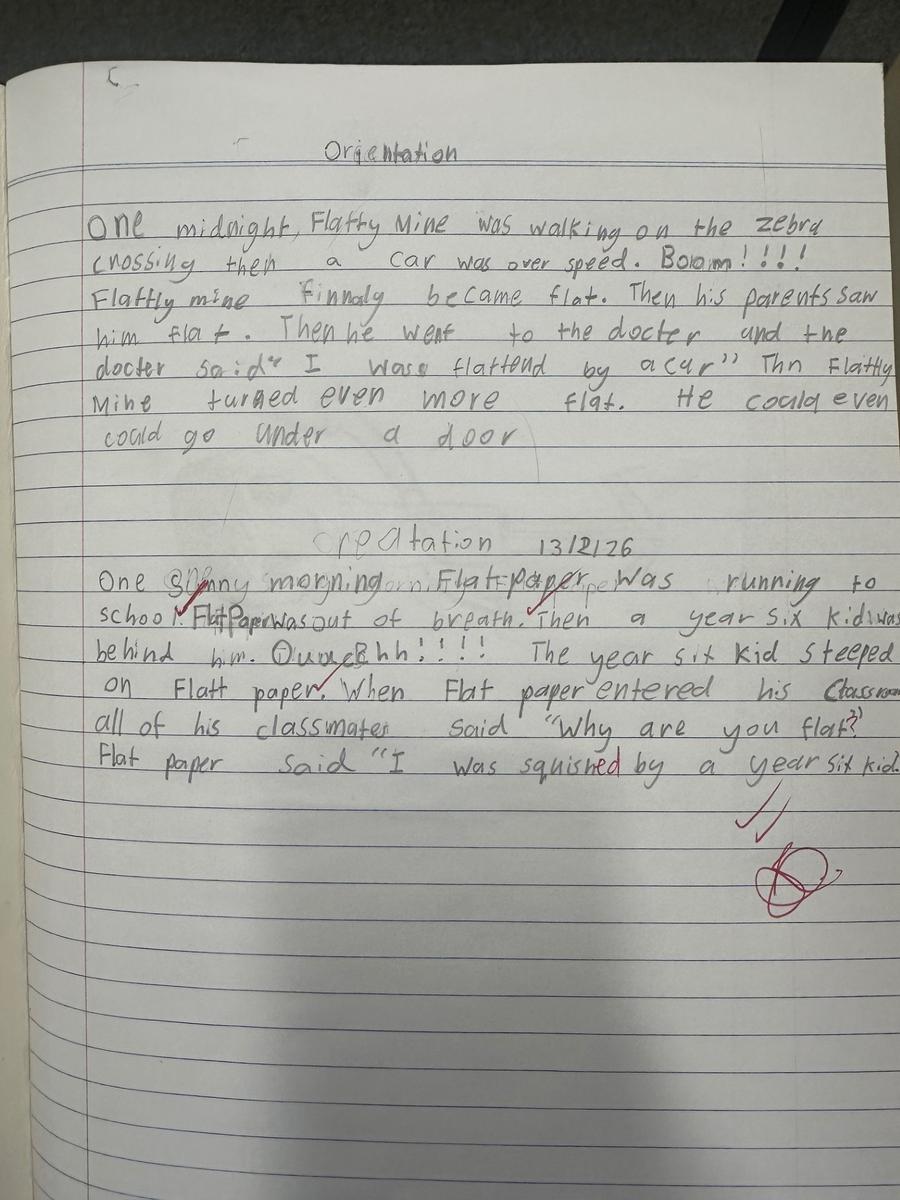 Orientation
One midnight, Flatty Mine was walking on the zebra
crossing then a car was over speed. Boom!!!!
Flattly mine finnaly became flat. Then his parents saw
him flat. Then he went to the docter and the
docter said" I was flattend by a car" Thn Flattly
Mine turned even more flat. He could even
could go under a door
Oreatation 13/2/26
One sunny morning Flat paper was running to
school. Flat Paper was out of breath. Then a year six kid was
behind him. Ouuchh!!!! The year six kid steeped
on Flatt paper. When Flat paper entered his Classroom
all of his classmates said "Why are you flat?"
Flat paper said "I was squished by a year six kid.